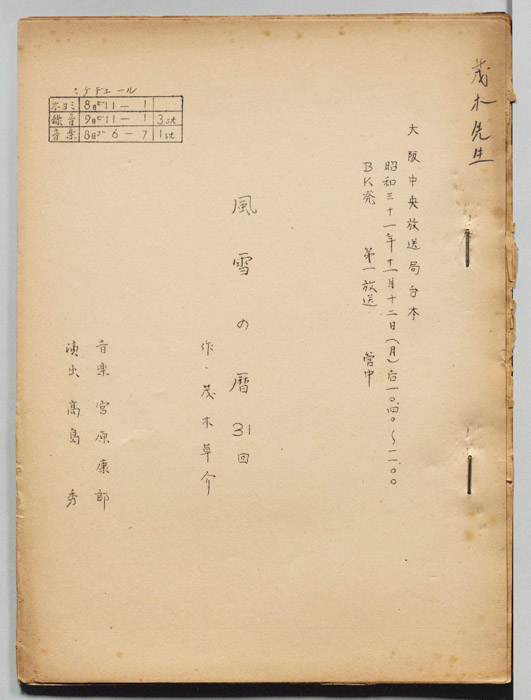 茂木先生
大阪中央放送局台本
昭和三十一年十一月十二日(月)后一〇.四〇～一一.〇〇
BK発 第一放送 管中
風雪の暦31回
作・茂木草介
音楽 宮原康郎
演出 高島秀
スケデュール
ホヨミ 8日 11－1
録音 9日 11－1 3st
音楽 8日 6－7 1st